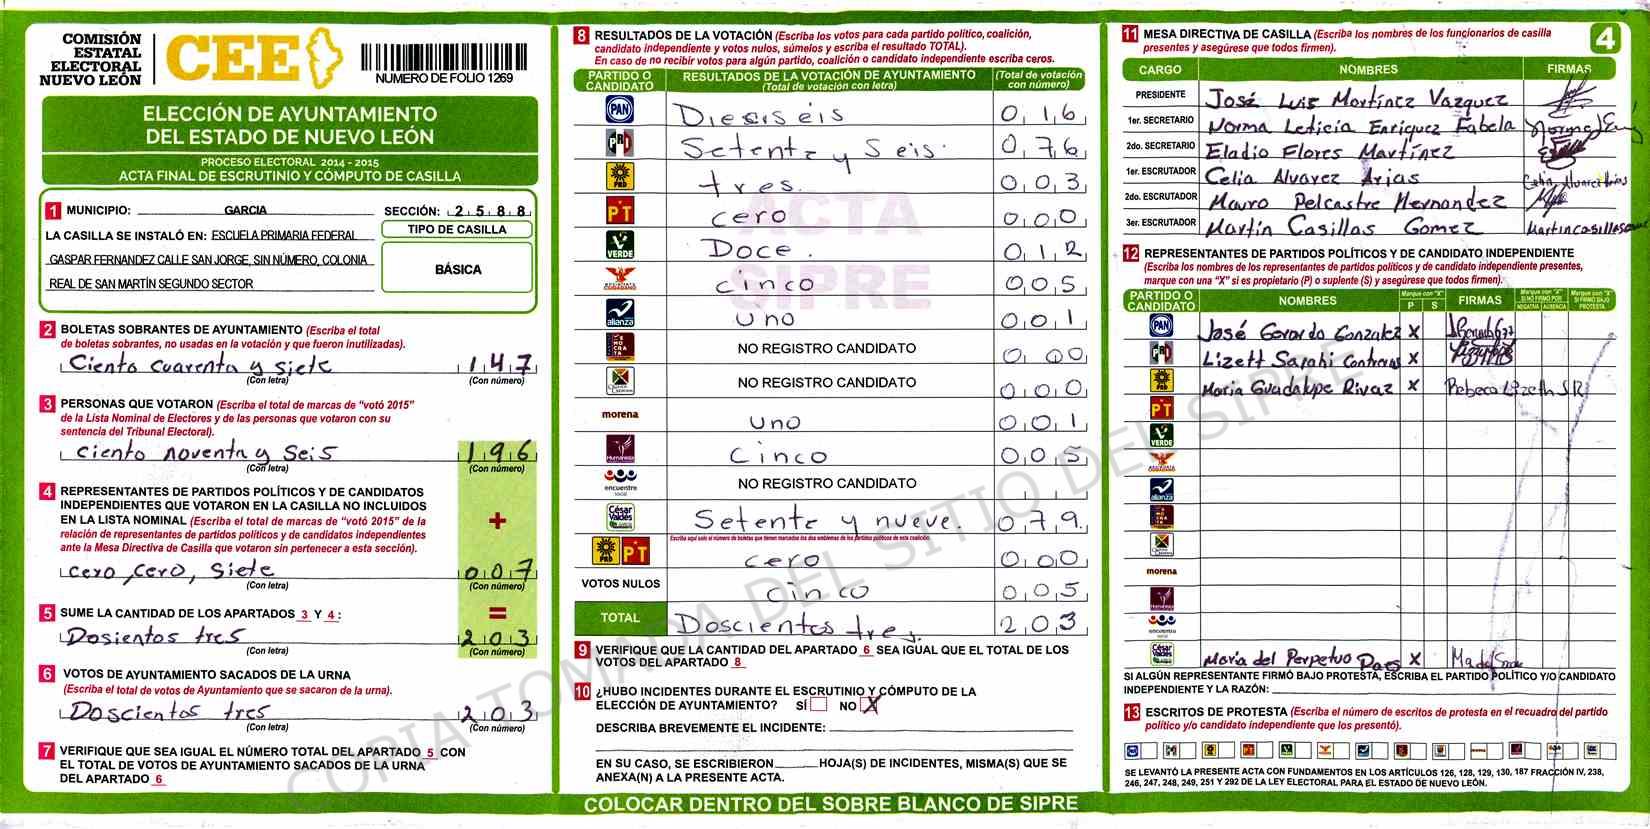 COMISIÓN
ESTATAL
ELECTORAL
NUEVO LEÓN
CEE
NUMERO DE FOLIO 1269
ELECCIÓN DE AYUNTAMIENTO
DEL ESTADO DE NUEVO LEÓN
PROCESO ELECTORAL 2014 - 2015
ACTA FINAL DE ESCRUTINIO Y CÓMPUTO DE CASILLA
1 MUNICIPIO: GARCIA SECCIÓN: 2 5 8 8
LA CASILLA SE INSTALÓ EN: ESCUELA PRIMARIA FEDERAL
GASPAR FERNANDEZ CALLE SAN JORGE, SIN NÚMERO, COLONIA
REAL DE SAN MARTÍN SEGUNDO SECTOR
TIPO DE CASILLA
BÁSICA
2 BOLETAS SOBRANTES DE AYUNTAMIENTO (Escriba el total
de boletas sobrantes, no usadas en la votación y que fueron inutilizadas).
Ciento cuarenta y siete 1 4 7
(Con letra) (Con número)
3 PERSONAS QUE VOTARON (Escriba el total de marcas de “votó 2015”
de la Lista Nominal de Electores y de las personas que votaron con su
sentencia del Tribunal Electoral).
Ciento noventa y Seis 1 9 6
(Con letra) (Con número)
4 REPRESENTANTES DE PARTIDOS POLÍTICOS Y DE CANDIDATOS
INDEPENDIENTES QUE VOTARON EN LA CASILLA NO INCLUIDOS
EN LA LISTA NOMINAL (Escriba el total de marcas de “votó 2015” de la
relación de representantes de partidos políticos y de candidatos independientes
ante la Mesa Directiva de Casilla que votaron sin pertenecer a esta sección).
+
cero, cero, siete 0 0 7
(Con letra) (Con número)
5 SUME LA CANTIDAD DE LOS APARTADOS 3 Y 4 : =
Dosientos tres 2 0 3
(Con letra) (Con número)
6 VOTOS DE AYUNTAMIENTO SACADOS DE LA URNA
(Escriba el total de votos de Ayuntamiento que se sacaron de la urna).
Doscientos tres 2 0 3
(Con letra) (Con número)
7 VERIFIQUE QUE SEA IGUAL EL NÚMERO TOTAL DEL APARTADO 5 CON
EL TOTAL DE VOTOS DE AYUNTAMIENTO SACADOS DE LA URNA
DEL APARTADO 6
8 RESULTADOS DE LA VOTACIÓN (Escriba los votos para cada partido político, coalición,
candidato independiente y votos nulos, súmelos y escriba el resultado TOTAL).
En caso de no recibir votos para algún partido, coalición o candidato independiente escriba ceros.
PARTIDO O CANDIDATO RESULTADOS DE LA VOTACIÓN DE AYUNTAMIENTO (Total de votación con letra) (Total de votación con número)
PAN Diesiseis 0 1 6
PRI Setenta y Seis. 0 7 6
PRD tres. 0 0 3
PT cero 0 0 0
VERDE Doce. 0 1 2
cinco 0 0 5
alianza uno 0 0 1
NO REGISTRO CANDIDATO 0 0 0
NO REGISTRO CANDIDATO 0 0 0
morena uno 0 0 1
Humanista Cinco 0 0 5
encuentro social NO REGISTRO CANDIDATO
César Valdés Setenta y nueve. 0 7 9
Escriba aquí solo el número de boletas que tienen marcados los dos emblemas de los partidos políticos de esta coalición.
PRD PT cero 0 0 0
VOTOS NULOS cinco 0 0 5
TOTAL Doscientos tres. 2 0 3
ACTA
SIPRE
9 VERIFIQUE QUE LA CANTIDAD DEL APARTADO 6 SEA IGUAL QUE EL TOTAL DE LOS
VOTOS DEL APARTADO 8
10 ¿HUBO INCIDENTES DURANTE EL ESCRUTINIO Y CÓMPUTO DE LA
ELECCIÓN DE AYUNTAMIENTO? SÍ NO X
DESCRIBA BREVEMENTE EL INCIDENTE:
EN SU CASO, SE ESCRIBIERON HOJA(S) DE INCIDENTES, MISMA(S) QUE SE
ANEXA(N) A LA PRESENTE ACTA.
COLOCAR DENTRO DEL SOBRE BLANCO DE SIPRE
11 MESA DIRECTIVA DE CASILLA (Escriba los nombres de los funcionarios de casilla
presentes y asegúrese que todos firmen).
4
CARGO NOMBRES FIRMAS
PRESIDENTE José Luis Martínez Vazquez
1er. SECRETARIO Norma Leticia Enriquez Fabela
2do. SECRETARIO Eladio Flores Martínez
1er. ESCRUTADOR Celia Alvarez Arias Celia Alvarez Arias
2do. ESCRUTADOR Mauro Pelcastre Hernandez
3er. ESCRUTADOR Martin Casillas Gomez
12 REPRESENTANTES DE PARTIDOS POLÍTICOS Y DE CANDIDATO INDEPENDIENTE
(Escriba los nombres de los representantes de partidos políticos y de candidato independiente presentes,
marque con una “X” si es propietario (P) o suplente (S) y asegúrese que todos firmen).
PARTIDO O CANDIDATO NOMBRES Marque con “X” P S FIRMAS Marque con “X” SI NO FIRMÓ POR NEGATIVA AUSENCIA Marque con “X” SI FIRMÓ BAJO PROTESTA.
PAN José Gerardo Gonzalez X
PRI Lizett Sarahi Contreras X
PRD Maria Guadalupe Rivaz X Rebeca Lizeth S R
PT
VERDE
alianza
morena
Humanista
encuentro social
César Valdés Maria del Perpetuo Paes X
SI ALGÚN REPRESENTANTE FIRMÓ BAJO PROTESTA, ESCRIBA EL PARTIDO POLÍTICO Y/O CANDIDATO
INDEPENDIENTE Y LA RAZÓN:
13 ESCRITOS DE PROTESTA (Escriba el número de escritos de protesta en el recuadro del partido
político y/o candidato independiente que los presentó).
SE LEVANTÓ LA PRESENTE ACTA CON FUNDAMENTOS EN LOS ARTÍCULOS 126, 128, 129, 130, 187 FRACCIÓN IV, 238,
246, 247, 248, 249, 251 Y 292 DE LA LEY ELECTORAL PARA EL ESTADO DE NUEVO LEÓN.
COPIA TOMADA DEL SITIO DEL SIPRE